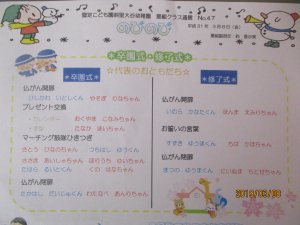 認定こども園新里大谷幼稚園 星組クラス通信 No.47
のびのび
平成31年 3月8日(金)
☆卒園式・修了式☆
☆代表のおともだち☆
＊卒園式＊
仏がん開扉
ひしかわ いとしくん やそざ ひなちゃん
プレゼント交換
-カレンダー- おくやま こなみちゃん
なたか まいちゃん
マーチング鼓隊ひきつぎ
さとう ひなのちゃん つちはし ゆうくん
ささき あいしゃちゃん ほりうち ゆいちゃん
たはら るいとくん くの はなちゃん
仏がん閉扉
たかはし だいじゅくん わたなべ あんりちゃん
＊修了式＊
仏がん開扉
いのら かなたくん ほんま えみりちゃん
お誓いの言葉
すずき ゆうまくん ちば かほちゃん
仏がん閉扉
まつの ゆうまくん にいぬま ちとせちゃん
2019/03/08